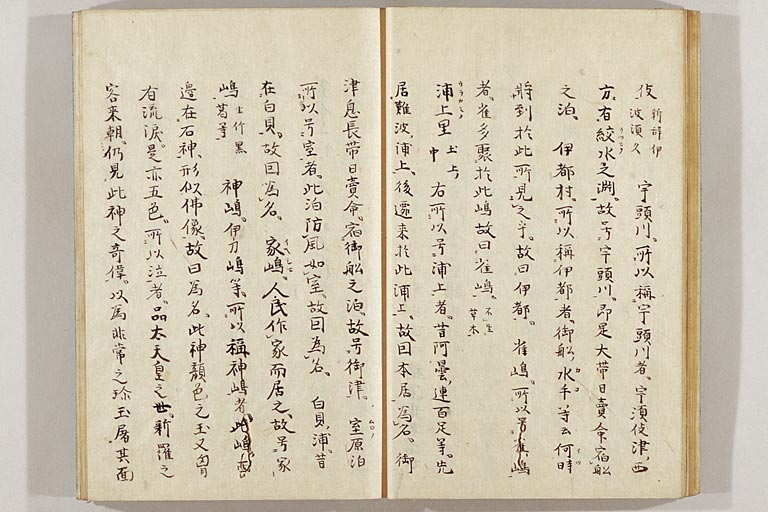 伎 新辞伊波須久 宇頭川。所以稱宇頭川者、宇須伎津、西
方有絞水之淵。故号宇頭川。即是大帯日賣命、宿御舩
之泊。伊都村。所以稱伊都者、御舩水手等云、何時
将到於此所見之乎。故曰伊都。雀嶋。所以号雀嶋
者、雀多聚於此嶋、故曰雀嶋。不生草木
浦上里 土上中 右所以号浦上者、昔阿曇連百足等、先
居難波浦上、後遷来於此浦上。故因本居為名。御
津。息長帯日賣命、宿御舩之泊。故号御津。室原泊
所以号室者、此泊防風如室。故因為名。白貝浦。昔
在白貝。故因為名。家嶋。人民作家而居之。故号家
嶋 生竹黒葛等 神嶋。伊刀嶋等。所以稱神嶋者、此嶋西
邊在石神、形似佛像。故因為名。此神顔色之玉。又胸
有流淚。是亦五色。所以泣者、品太天皇之世、新羅之
客来朝。仍見此神之奇偉、以為非常之珎玉、屠其面